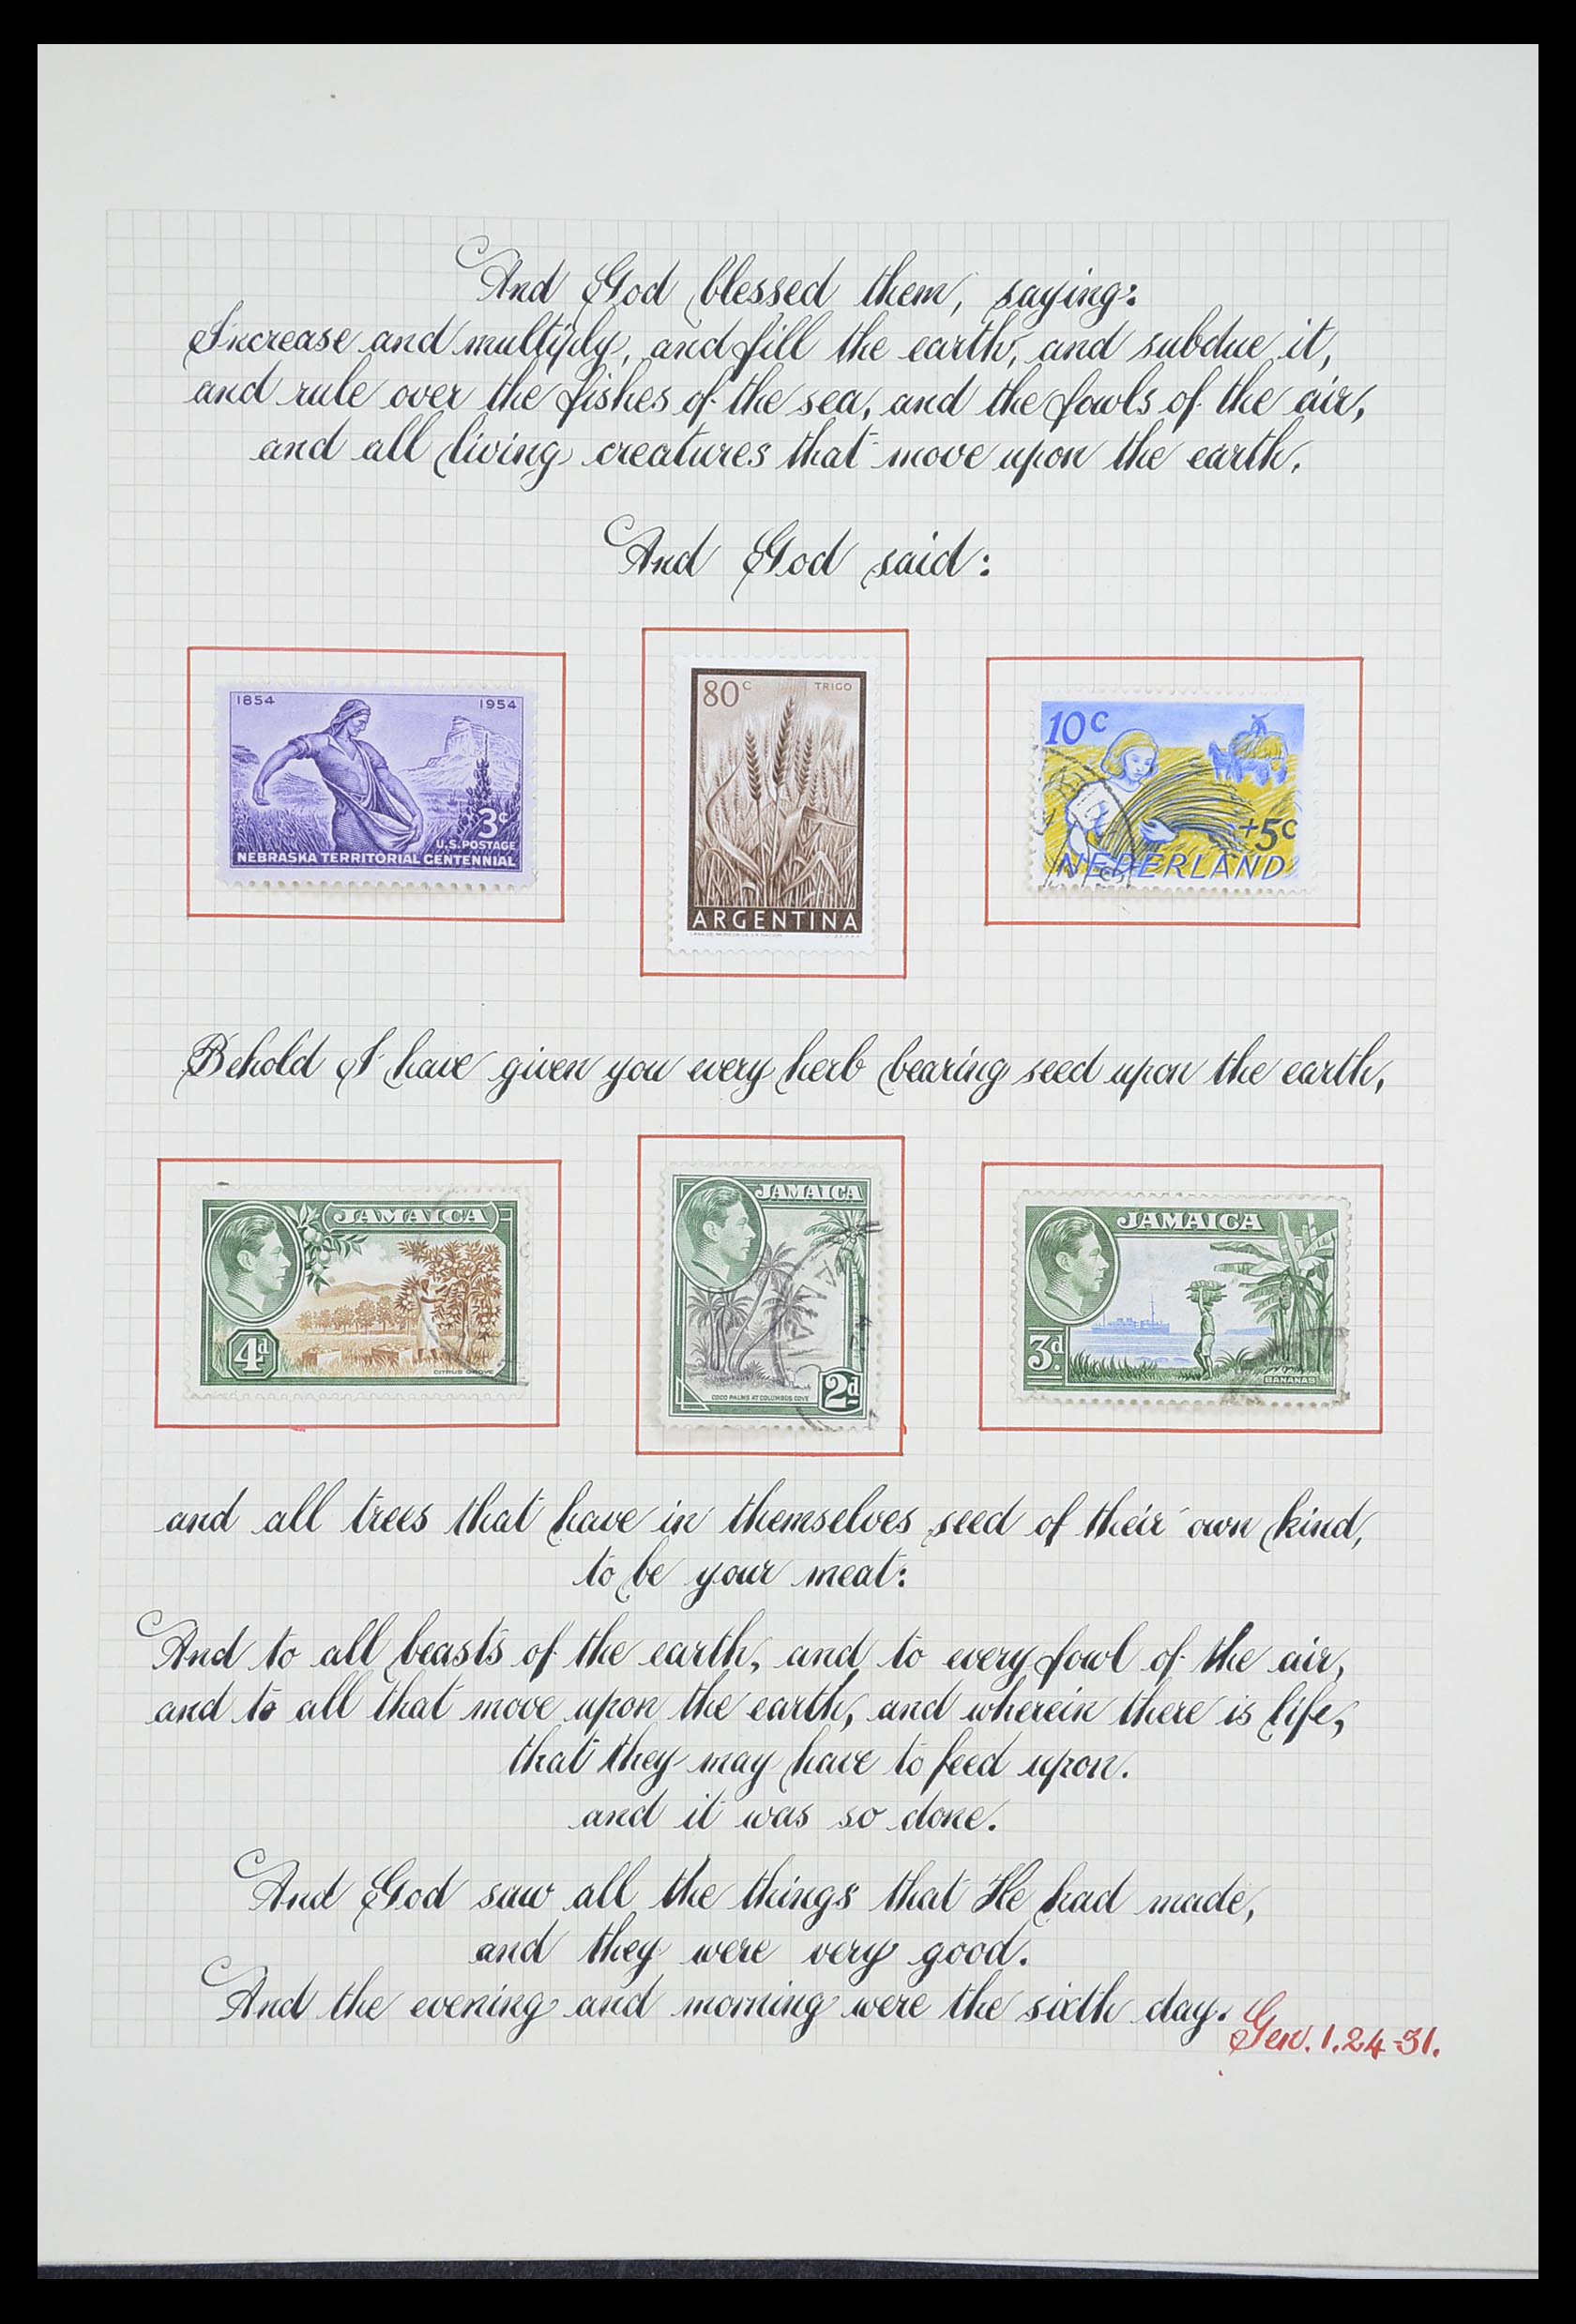 And God blessed them, saying:
Increase and multiply, and fill the earth, and subdue it,
and rule over the fishes of the sea, and the fowls of the air,
and all living creatures that move upon the earth.
And God said:
1854 1954
3¢
U.S. POSTAGE
NEBRASKA TERRITORIAL CENTENNIAL
80c TRIGO
ARGENTINA
10c
+5c
NEDERLAND
Behold I have given you every herb bearing seed upon the earth,
JAMAICA
4d
CITRUS GROVE
JAMAICA
COCO PALMS AT COLUMBUS COVE
2d
JAMAICA
3d
BANANAS
and all trees that have in themselves seed of their own kind,
to be your meat:
And to all beasts of the earth, and to every fowl of the air,
and to all that move upon the earth, and wherein there is life,
that they may have to feed upon.
and it was so done.
And God saw all the things that He had made,
and they were very good.
And the evening and morning were the sixth day.
Gen. 1.24-31.